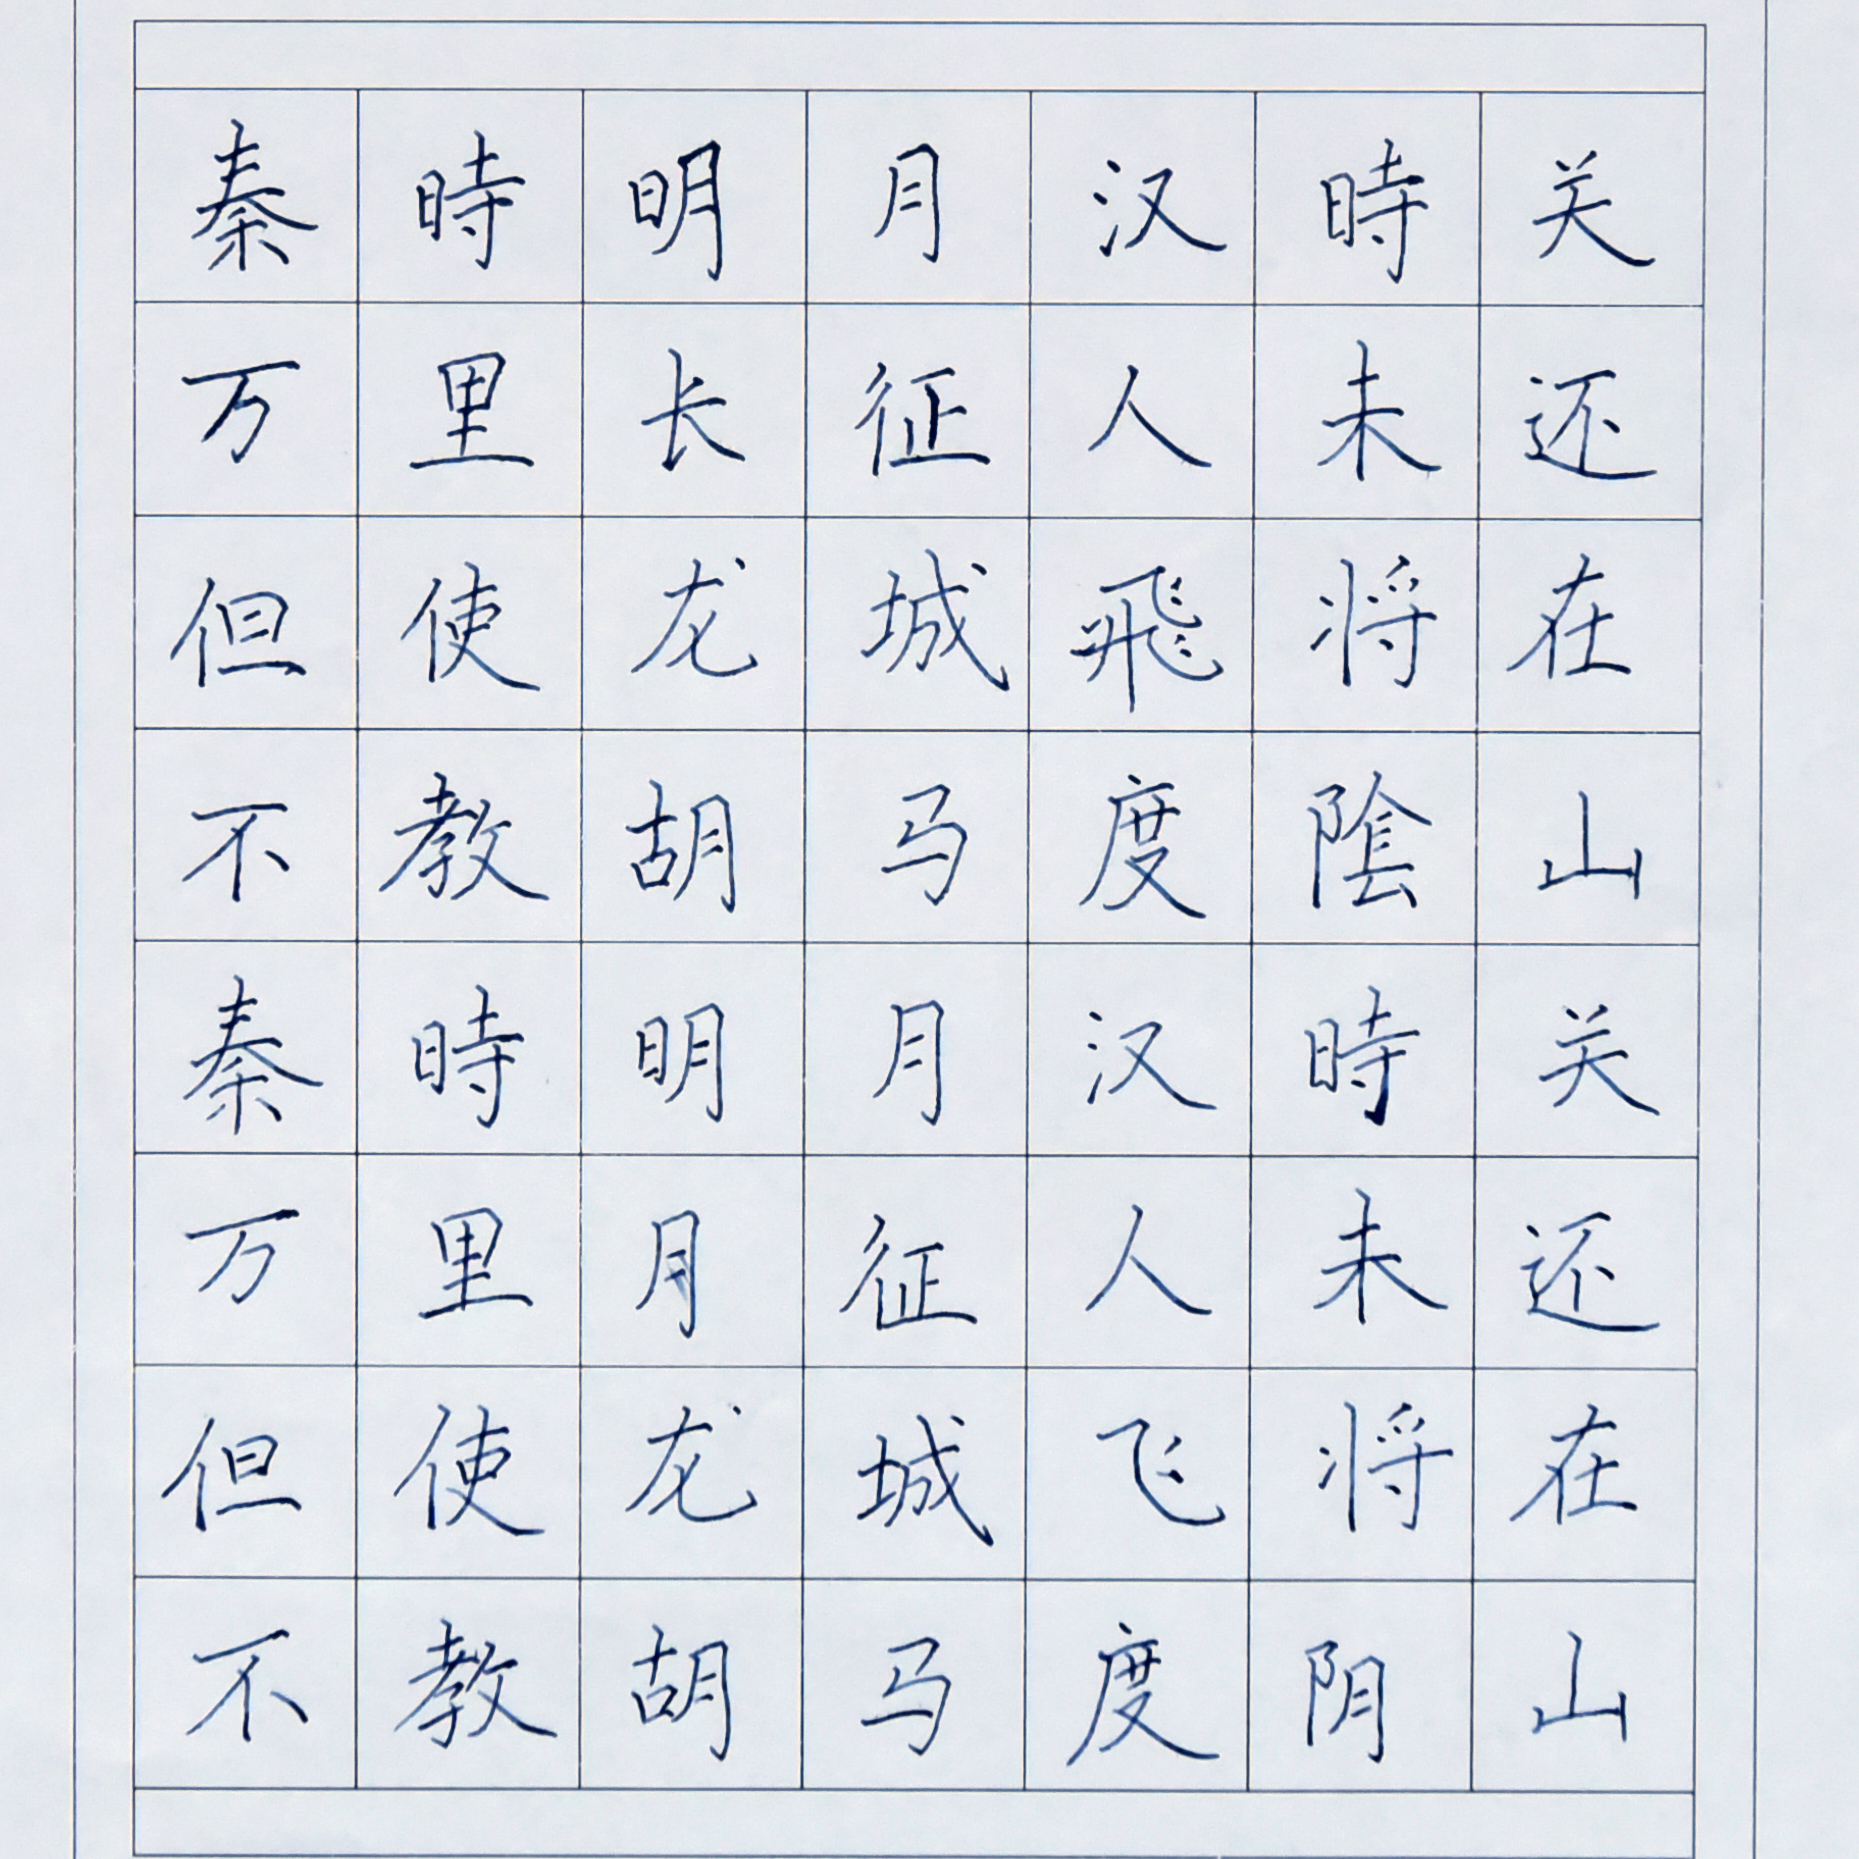 秦時明月汉時关
万里长征人未还
但使龙城飛将在
不教胡马度陰山
秦時明月汉時关
万里月征人未还
但使龙城飞将在
不教胡马度阴山